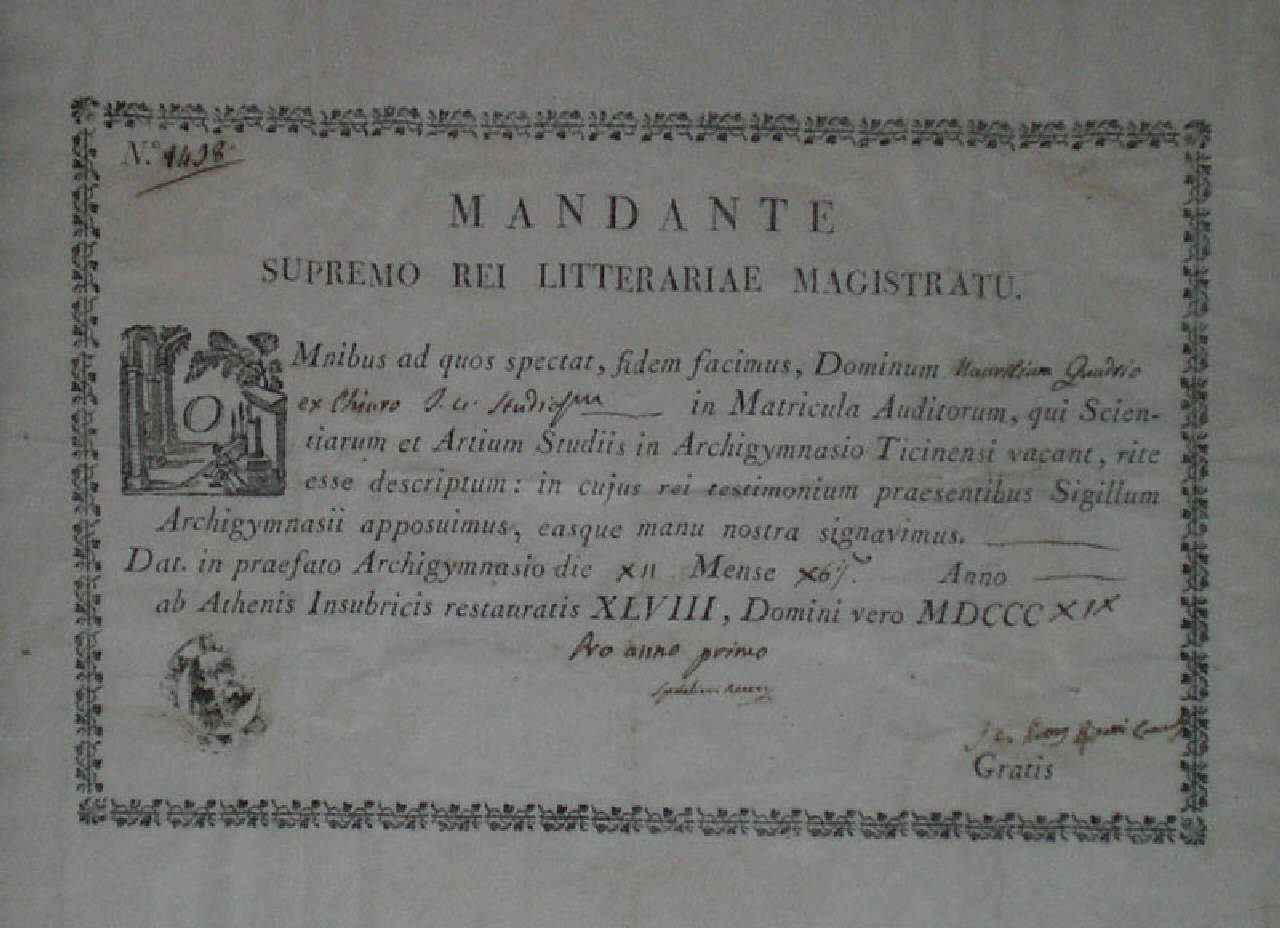 N.º 1438
MANDANTE
SUPREMO REI LITTERARIAE MAGISTRATU.
OMnibus ad quos spectat, fidem facimus, Dominum Mauritium Quadrio
ex Chiuro in Matricula Auditorum, qui Scien-
tiarum et Artium Studiis in Archigymnasio Ticinensi vacant, rite
esse descriptum: in cujus rei testimonium praesentibus Sigillum
Archigymnasii apposuimus, easque manu nostra signavimus.
Dat. in praefato Archigymnasio die XII Mense Anno
ab Athenis Insubricis restauratis XLVIII, Domini vero MDCCCXIX
Pro anno primo
Gratis